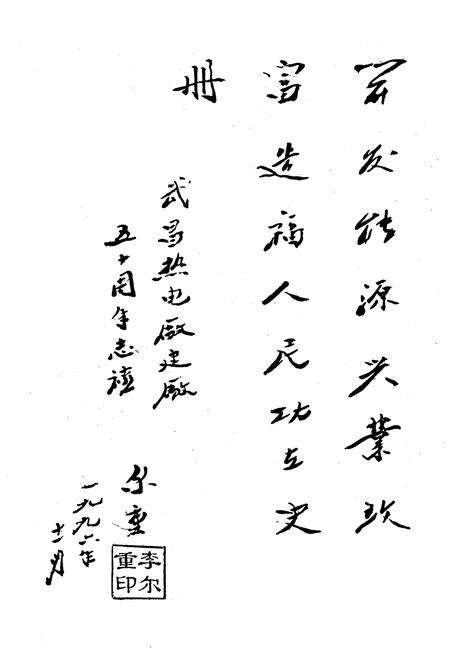 开发能源兴業致
富造福人民功在史
册
武昌热电廠建廠
五十周年志禧
尔重
李尔
重印
一九九六年
十一月